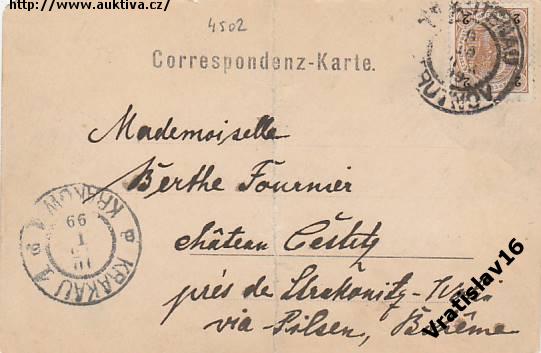 http://www.auktiva.cz/
4502
Correspondenz-Karte.
Mademoiselle
Berthe Fournier
château Čestitz
près de Strakonitz-
via-Pilsen, Bohême
KRAKÓW
KRAKAU
99
Vratislav16